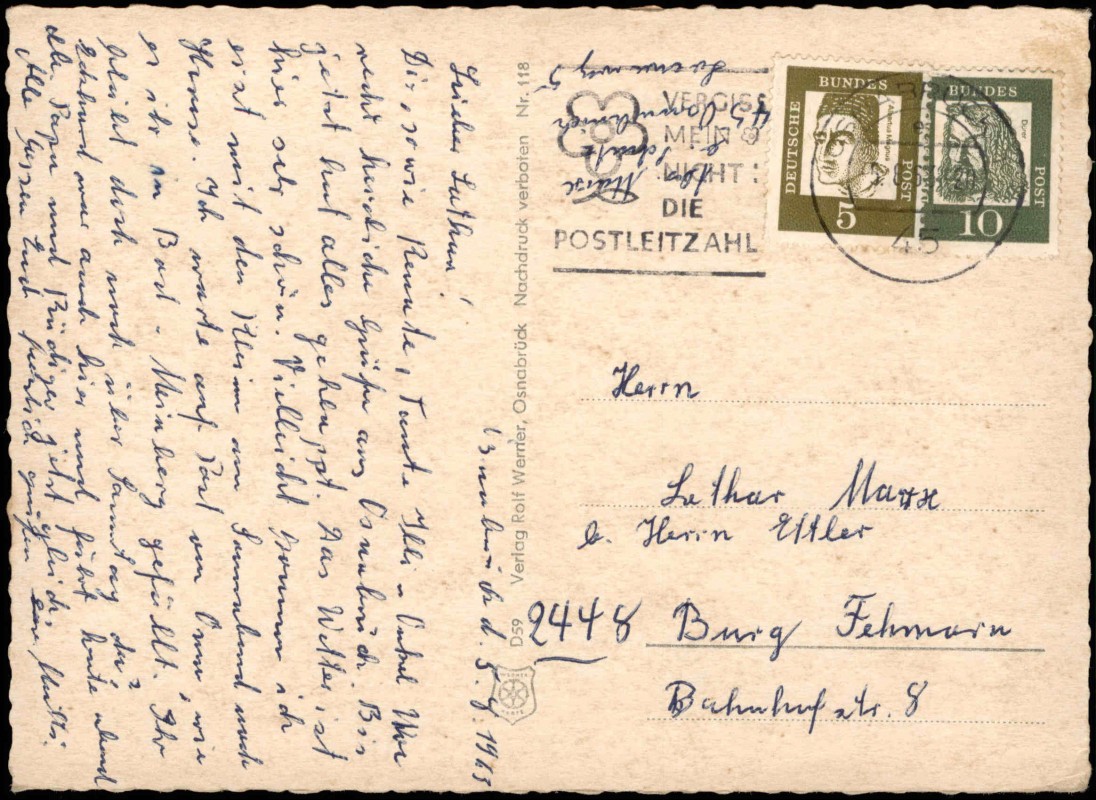 Osnabrück d. 5.8.1965
Lieber Lothar!
Dir sowie Renate, Tante Illi u. Onkel Uwe
recht herzliche Grüße aus Osnabrück. Bis
jetzt hat alles geklappt. Das Wetter ist
hier sehr schön. Vielleicht komme ich
erst mit der Kleinen am Sonnabend nach
Hause. Ich warte auf Post von Omi, wie
es ihr in Bad-Meinberg gefällt. Ihr
bleibt doch noch über Sonntag da
und fährt heute abend
Alle lassen Euch herzlich grüßen Mutti
Verlag Rolf Werner, Osnabrück Nachdruck verboten Nr. 118
D59
VERGISS
MEIN
NICHT:
DIE
POSTLEITZAHL
DEUTSCHE
BUNDES
POST
5
BUNDES
POST
10
45
Herrn
Lothar Marx
b. Herrn Ettler
2448 Burg Fehmarn
Bahnhofstr. 8